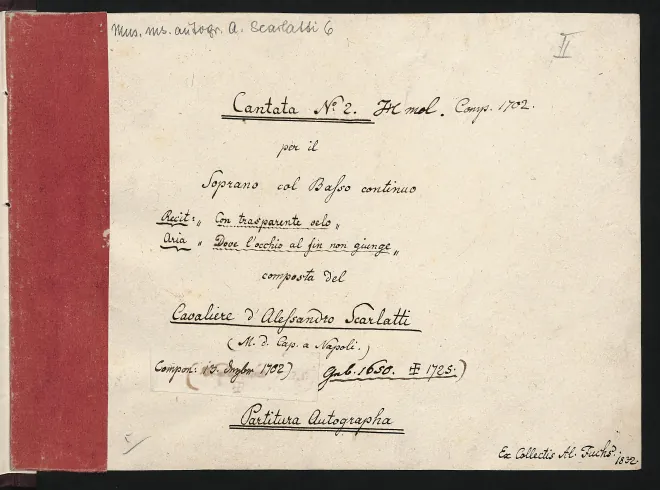 Mus. ms. autogr. A. Scarlatti 6
II
Cantata No. 2. H mol. Comp. 1702.
per il
Soprano col Basso continuo
Recit: „ Con trasparente velo „
Aria „ Dove l'occhio al fin non giunge „
composta del
Cavaliere d'Alessandro Scarlatti
(M. d. Cap. a Napoli.)
Compon: 13. 1702) Geb. 1650. 1725.)
Partitura Autographa
Ex Collectis Al. Fuchs. 1832.